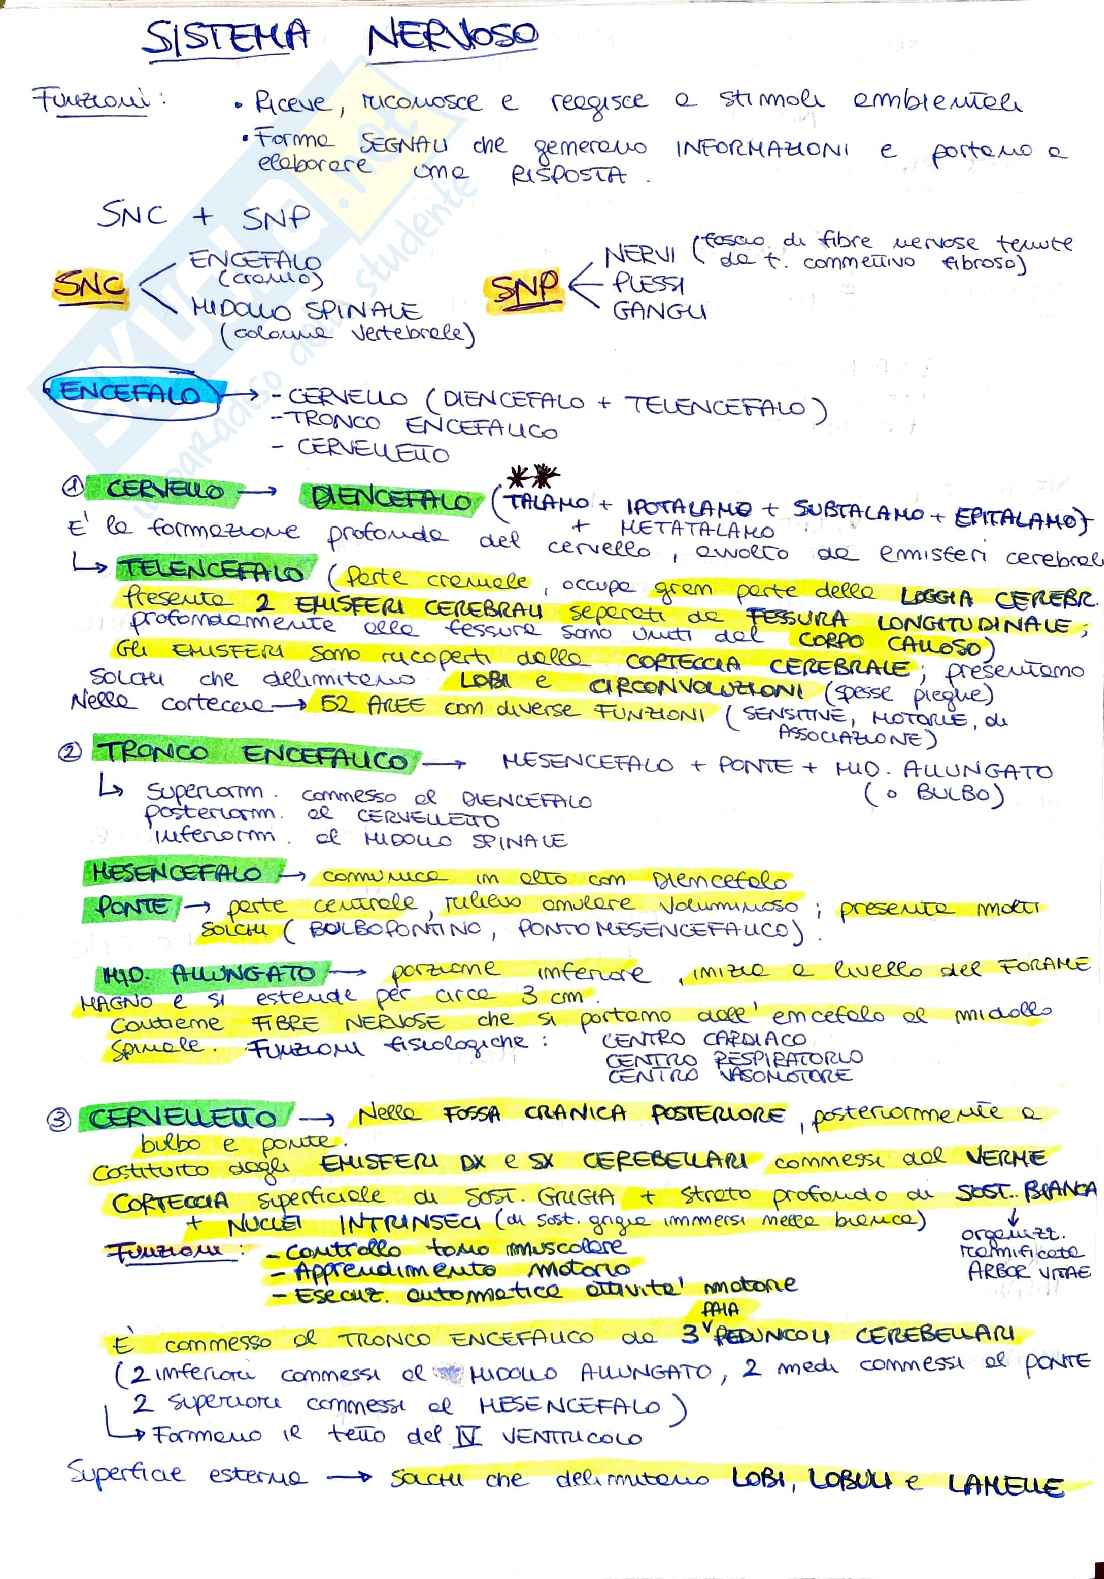 SISTEMA NERVOSO
Funzioni: • Riceve, riconosce e reagisce a stimoli ambientali
• Forma SEGNALI che generano INFORMAZIONI e portano a
elaborare una RISPOSTA.
SNC + SNP
SNC ENCEFALO
(cranio)
MIDOLLO SPINALE
(colonna vertebrale)
SNP NERVI (fascio di fibre nervose tenute
da t. connettivo fibroso)
PLESSI
GANGLI
ENCEFALO → - CERVELLO (DIENCEFALO + TELENCEFALO)
- TRONCO ENCEFALICO
- CERVELLETTO
① CERVELLO → DIENCEFALO (TALAMO + IPOTALAMO + SUBTALAMO + EPITALAMO)
+ METATALAMO
E' la formazione profonda del cervello, avvolto da emisferi cerebrali
↳ TELENCEFALO (parte craniale, occupa gran parte della LOGGIA CEREBR.
Presenta 2 EMISFERI CEREBRALI separati da FESSURA LONGITUDINALE;
profondamente alla fessura sono uniti dal CORPO CALLOSO)
Gli EMISFERI sono ricoperti dalla CORTECCIA CEREBRALE; presentano
SOLCHI che delimitano LOBI e CIRCONVOLUZIONI (spesse pieghe)
Nella corteccia → 52 AREE con diverse FUNZIONI (SENSITIVE, MOTORIE, di
ASSOCIAZIONE)
② TRONCO ENCEFALICO → MESENCEFALO + PONTE + MID. ALLUNGATO
(o BULBO)
↳ superiorm. connesso al DIENCEFALO
posteriorm. al CERVELLETTO
inferiorm. al MIDOLLO SPINALE
MESENCEFALO → comunica in alto con Diencefalo
PONTE → parte centrale, rilievo anulare voluminoso; presenta molti
SOLCHI (BULBOPONTINO, PONTOMESENCEFALICO).
MID. ALLUNGATO → porzione inferiore, inizia a livello del FORAME
MAGNO e si estende per circa 3 cm.
Contiene FIBRE NERVOSE che si portano dall'encefalo al midollo
spinale. FUNZIONI fisiologiche: CENTRO CARDIACO
CENTRO RESPIRATORIO
CENTRO VASOMOTORE
③ CERVELLETTO → Nella FOSSA CRANICA POSTERIORE, posteriormente a
bulbo e ponte.
Costituito dagli EMISFERI DX e SX CEREBELLARI connessi dal VERME
CORTECCIA superficiale di SOST. GRIGIA + strato profondo di SOST. BIANCA
+ NUCLEI INTRINSECI (di sost. grigia immersi nella bianca)
↓
organizz.
ramificata
ARBOR VITAE
Funzioni: - Controllo tono muscolare
- Apprendimento motorio
- Esecuz. automatica attivita' motorie
PAIA
È connesso al TRONCO ENCEFALICO da 3 PEDUNCOLI CEREBELLARI
(2 inferiori connessi al MIDOLLO ALLUNGATO, 2 medi connessi al PONTE
2 superiori connessi al MESENCEFALO)
↳ Formano il tetto del IV VENTRICOLO
Superficie esterna → SOLCHI che delimitano LOBI, LOBULI e LAMELLE